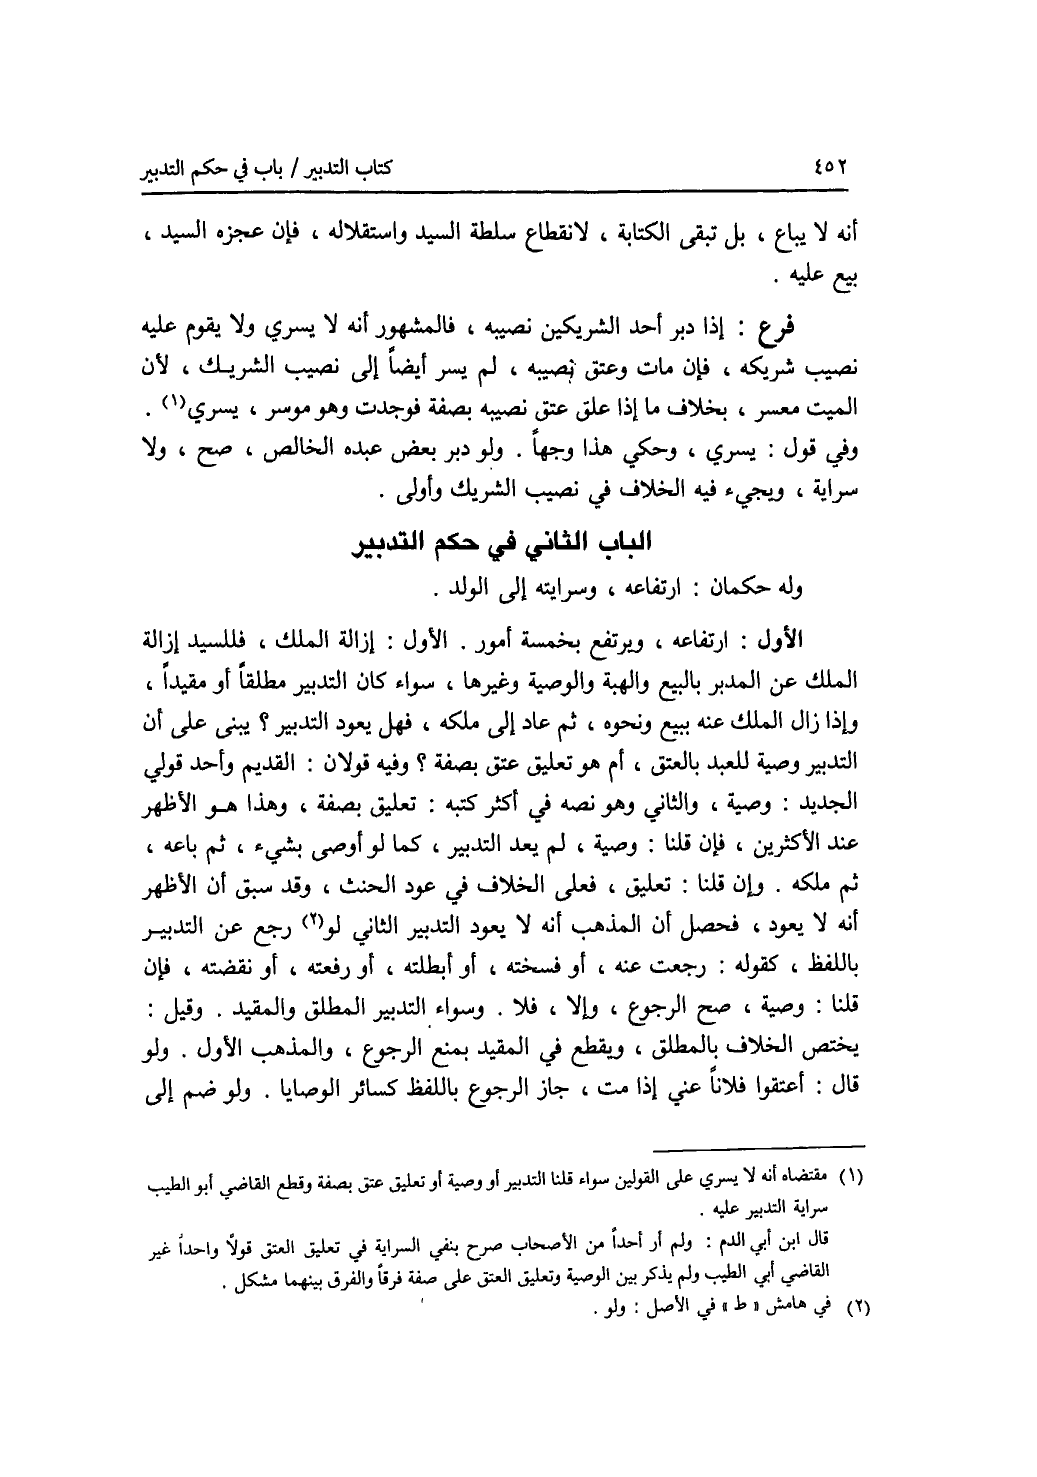 ٤٥٢
كتاب التدبير / باب في حكم التدبير
أنه لا يباع ، بل تبقى الكتابة ، لانقطاع سلطة السيد واستقلاله ، فإن عجزه السيد ،
بيع عليه .
فرع : إذا دبر أحد الشريكين نصيبه ، فالمشهور أنه لا يسري ولا يقوم عليه
نصيب شريكه ، فإن مات وعتق نصيبه ، لم يسر أيضاً إلى نصيب الشريك ، لأن
الميت معسر ، بخلاف ما إذا علق عتق نصيبه بصفة فوجدت وهو موسر ، يسري(١) .
وفي قول : يسري ، وحكي هذا وجهاً . ولو دبر بعض عبده الخالص ، صح ، ولا
سراية ، ويجيء فيه الخلاف في نصيب الشريك وأولى .
الباب الثاني في حكم التدبير
وله حكمان : ارتفاعه ، وسرايته إلى الولد .
الأول : ارتفاعه ، ويرتفع بخمسة أمور . الأول : إزالة الملك ، فللسيد إزالة
الملك عن المدبر بالبيع والهبة والوصية وغيرها ، سواء كان التدبير مطلقاً أو مقيداً ،
وإذا زال الملك عنه ببيع ونحوه ، ثم عاد إلى ملكه ، فهل يعود التدبير ؟ يبنى على أن
التدبير وصية للعبد بالعتق ، أم هو تعليق عتق بصفة ؟ وفيه قولان : القديم وأحد قولي
الجديد : وصية ، والثاني وهو نصه في أكثر كتبه : تعليق بصفة ، وهذا هو الأظهر
عند الأكثرين ، فإن قلنا : وصية ، لم يعد التدبير ، كما لو أوصى بشيء ، ثم باعه ،
ثم ملكه . وإن قلنا : تعليق ، فعلى الخلاف في عود الحنث ، وقد سبق أن الأظهر
أنه لا يعود ، فحصل أن المذهب أنه لا يعود التدبير الثاني لو(٢) رجع عن التدبير
باللفظ ، كقوله : رجعت عنه ، أو فسخته ، أو أبطلته ، أو رفعته ، أو نقضته ، فإن
قلنا : وصية ، صح الرجوع ، وإلا ، فلا . وسواء التدبير المطلق والمقيد . وقيل :
يختص الخلاف بالمطلق ، ويقطع في المقيد بمنع الرجوع ، والمذهب الأول . ولو
قال : أعتقوا فلاناً عني إذا مت ، جاز الرجوع باللفظ كسائر الوصايا . ولو ضم إلى
(١) مقتضاه أنه لا يسري على القولين سواء قلنا التدبير أو وصية أو تعليق عتق بصفة وقطع القاضي أبو الطيب
سراية التدبير عليه .
قال ابن أبي الدم : ولم أر أحداً من الأصحاب صرح بنفي السراية في تعليق العتق قولًا واحداً غير
القاضي أبي الطيب ولم يذكر بين الوصية وتعليق العتق على صفة فرقاً والفرق بينهما مشكل .
(٢) في هامش « ط » في الأصل : ولو .